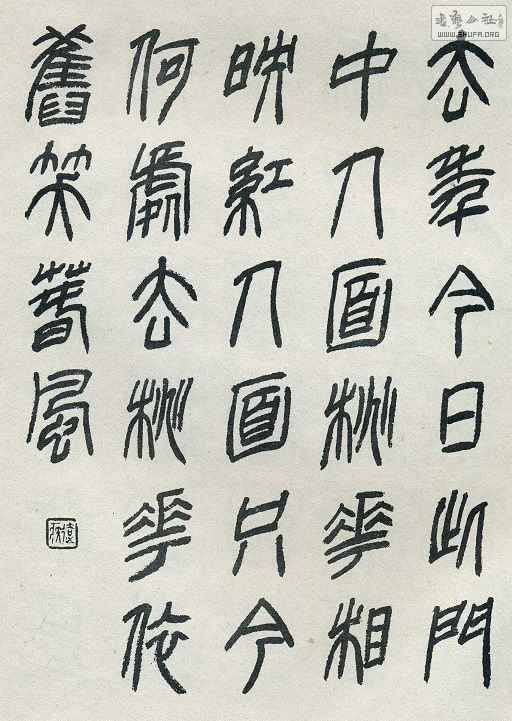 去年今日此門
中人面桃花相
映紅人面只今
何處去桃花依
舊笑春風
書藝公社
WWW.SHUFA.ORG